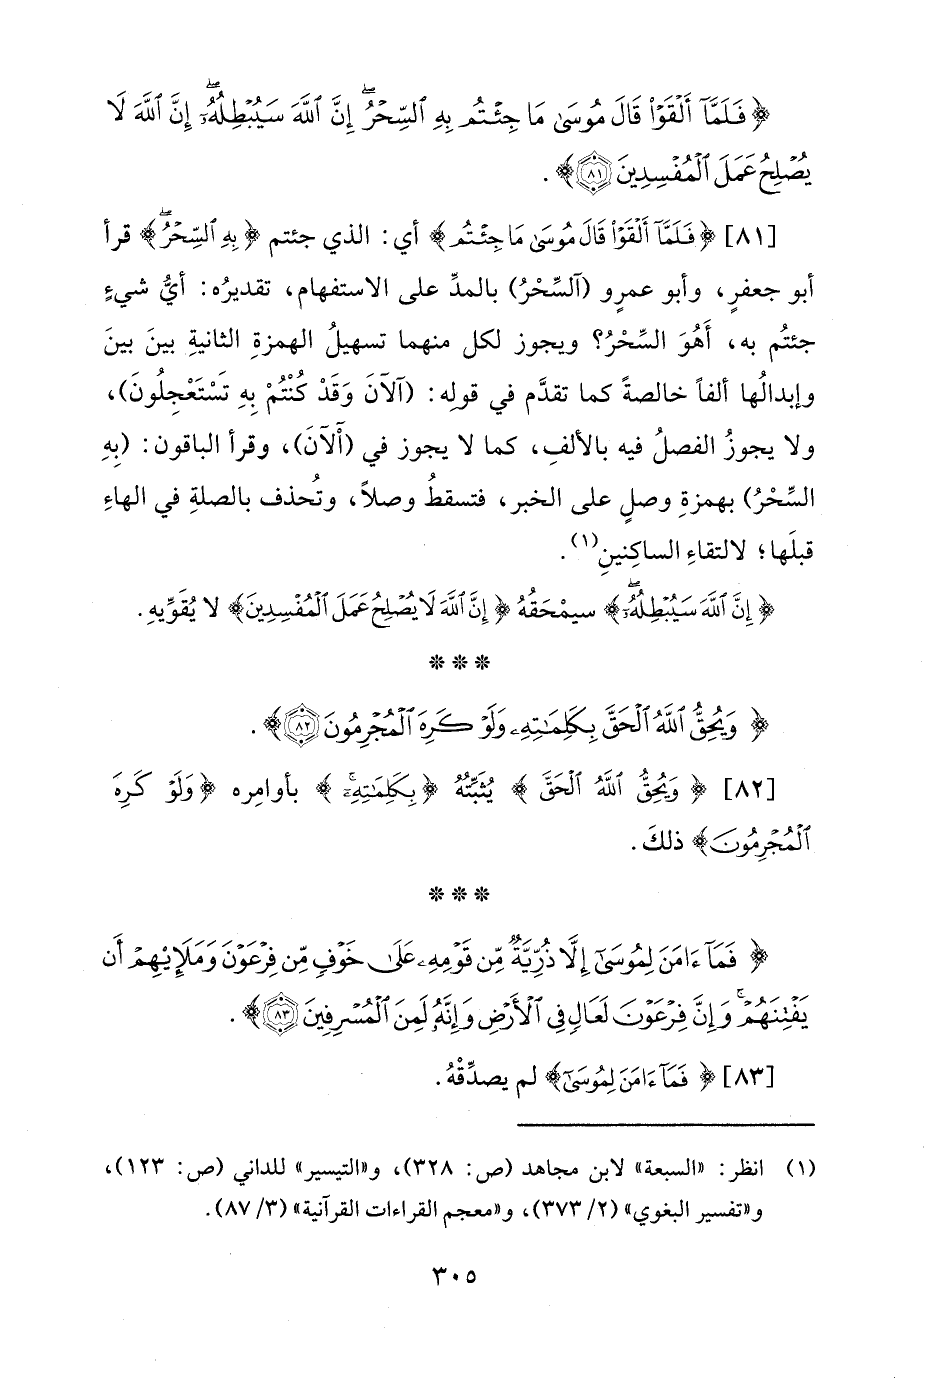 ﴿ فَلَمَّآ أَلْقَوْا۟ قَالَ مُوسَىٰ مَا جِئْتُم بِهِ ٱلسِّحْرُ ۖ إِنَّ ٱللَّهَ سَيُبْطِلُهُۥٓ ۖ إِنَّ ٱللَّهَ لَا
يُصْلِحُ عَمَلَ ٱلْمُفْسِدِينَ ٨١ ﴾ .
[٨١] ﴿ فَلَمَّآ أَلْقَوْا۟ قَالَ مُوسَىٰ مَا جِئْتُم ﴾ أي: الذي جئتم ﴿ بِهِ ٱلسِّحْرُ ۖ ﴾ قرأ
أبو جعفرٍ، وأبو عمرٍو (آلسِّحْرُ) بالمدِّ على الاستفهام، تقديرُه: أيُّ شيءٍ
جئتُم به، أَهُوَ السِّحْرُ؟ ويجوز لكل منهما تسهيلُ الهمزةِ الثانيةِ بينَ بينَ
وإبدالُها ألفاً خالصةً كما تقدَّم في قولِه: (آلآنَ وَقَدْ كُنْتُمْ بِهِ تَسْتَعْجِلُونَ)،
ولا يجوزُ الفصلُ فيه بالألفِ، كما لا يجوز في (أَلآنَ)، وقرأ الباقون: (بِهِ
السِّحْرُ) بهمزةِ وصلٍ على الخبر، فتسقطُ وصلاً، وتُحذف بالصلةِ في الهاءِ
قبلَها؛ لالتقاءِ الساكِنينِ(١).
﴿ إِنَّ ٱللَّهَ سَيُبْطِلُهُۥٓ ۖ ﴾ سيمْحَقُهُ ﴿ إِنَّ ٱللَّهَ لَا يُصْلِحُ عَمَلَ ٱلْمُفْسِدِينَ ﴾ لا يُقَوِّيهِ.
* * *
﴿ وَيُحِقُّ ٱللَّهُ ٱلْحَقَّ بِكَلِمَـٰتِهِۦ وَلَوْ كَرِهَ ٱلْمُجْرِمُونَ ٨٢ ﴾ .
[٨٢] ﴿ وَيُحِقُّ ٱللَّهُ ٱلْحَقَّ ﴾ يُثَبِّتُهُ ﴿ بِكَلِمَـٰتِهِۦ ﴾ بأوامِره ﴿ وَلَوْ كَرِهَ
ٱلْمُجْرِمُونَ ﴾ ذلكَ.
* * *
﴿ فَمَآ ءَامَنَ لِمُوسَىٰٓ إِلَّا ذُرِّيَّةٌ مِّن قَوْمِهِۦ عَلَىٰ خَوْفٍ مِّن فِرْعَوْنَ وَمَلَإِي۟هِمْ أَن
يَفْتِنَهُمْ ۚ وَإِنَّ فِرْعَوْنَ لَعَالٍ فِى ٱلْأَرْضِ وَإِنَّهُۥ لَمِنَ ٱلْمُسْرِفِينَ ٨٣ ﴾ .
[٨٣] ﴿ فَمَآ ءَامَنَ لِمُوسَىٰٓ ﴾ لم يصدِّقْهُ.
(١) انظر: «السبعة» لابن مجاهد (ص: ٣٢٨)، و«التيسير» للداني (ص: ١٢٣)،
و«تفسير البغوي» (٢/ ٣٧٣)، و«معجم القراءات القرآنية» (٣/ ٨٧).
٣٠٥